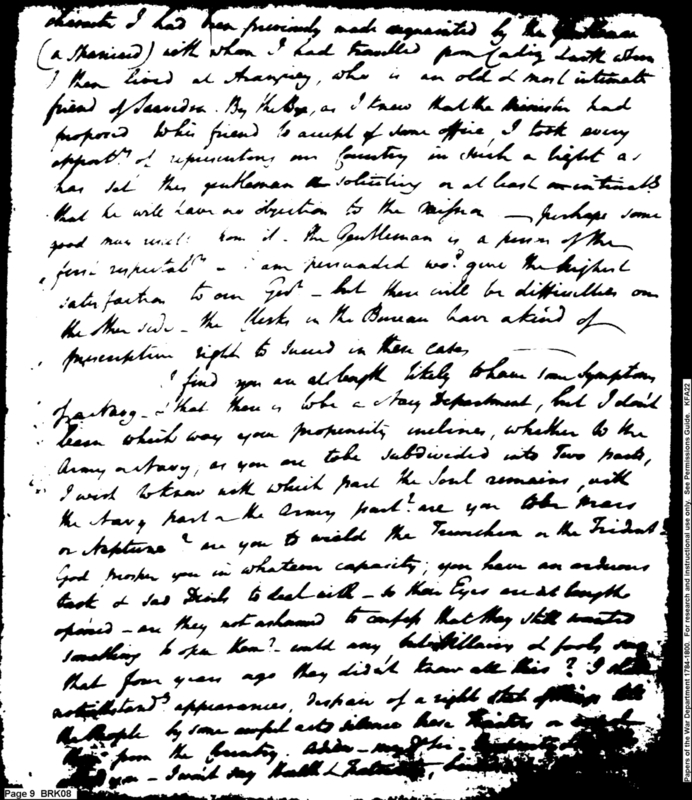 character I had been previously made acquainted by the Gentleman
(a Spaniard) with whom I had travelled from Cadiz & with whom
I then lived at Aranjuez, who is an old & most intimate
friend of Saavedra. By the Bye, as I knew that the Minister had
proposed to his friend to accept of some office, I took every
opporty of representing our Country in such a light as
has set this gentleman soliciting or at least
that he will have no objection to the mission — perhaps some
good may result from it. The Gentleman is a person of the
first respectaby — I am persuaded wod give the highest
satisfaction to our Govt — but there will be difficulties on
the other side — the Clerks in the Bureau have a kind of
prescriptive right to succeed in these cases —
I find you are at length likely to have some Symptoms
of a Navy — & that there is to be a Navy Department, but I don't
learn which way your propensity inclines, whether to the
Army or Navy, as you are to be subdivided into Two parts,
I wish to know with which part the Soul remains, with
the Navy part or the Army part? are you to be Mars
or Neptune? are you to wield the Truncheon or the Trident?
God prosper you in whatever capacity; you have an arduous
task & sad Devils to deal with — so their Eyes are at length
opened — are they not ashamed to confess that they still wanted
something to open them? — could any but Villains & fools say
that four years ago they didn't know all this? I still
notwithstandg appearances, despair of a right state of things till
the People by some awful acts silence these Traitors or
them from the Country. Adieu — my Dr Sir —
you — I won't say Health & Fraternity,
Page 9 BRK08
Papers of the War Department 1784-1800. For research and instructional use only. See Permissions Guide. KFA22